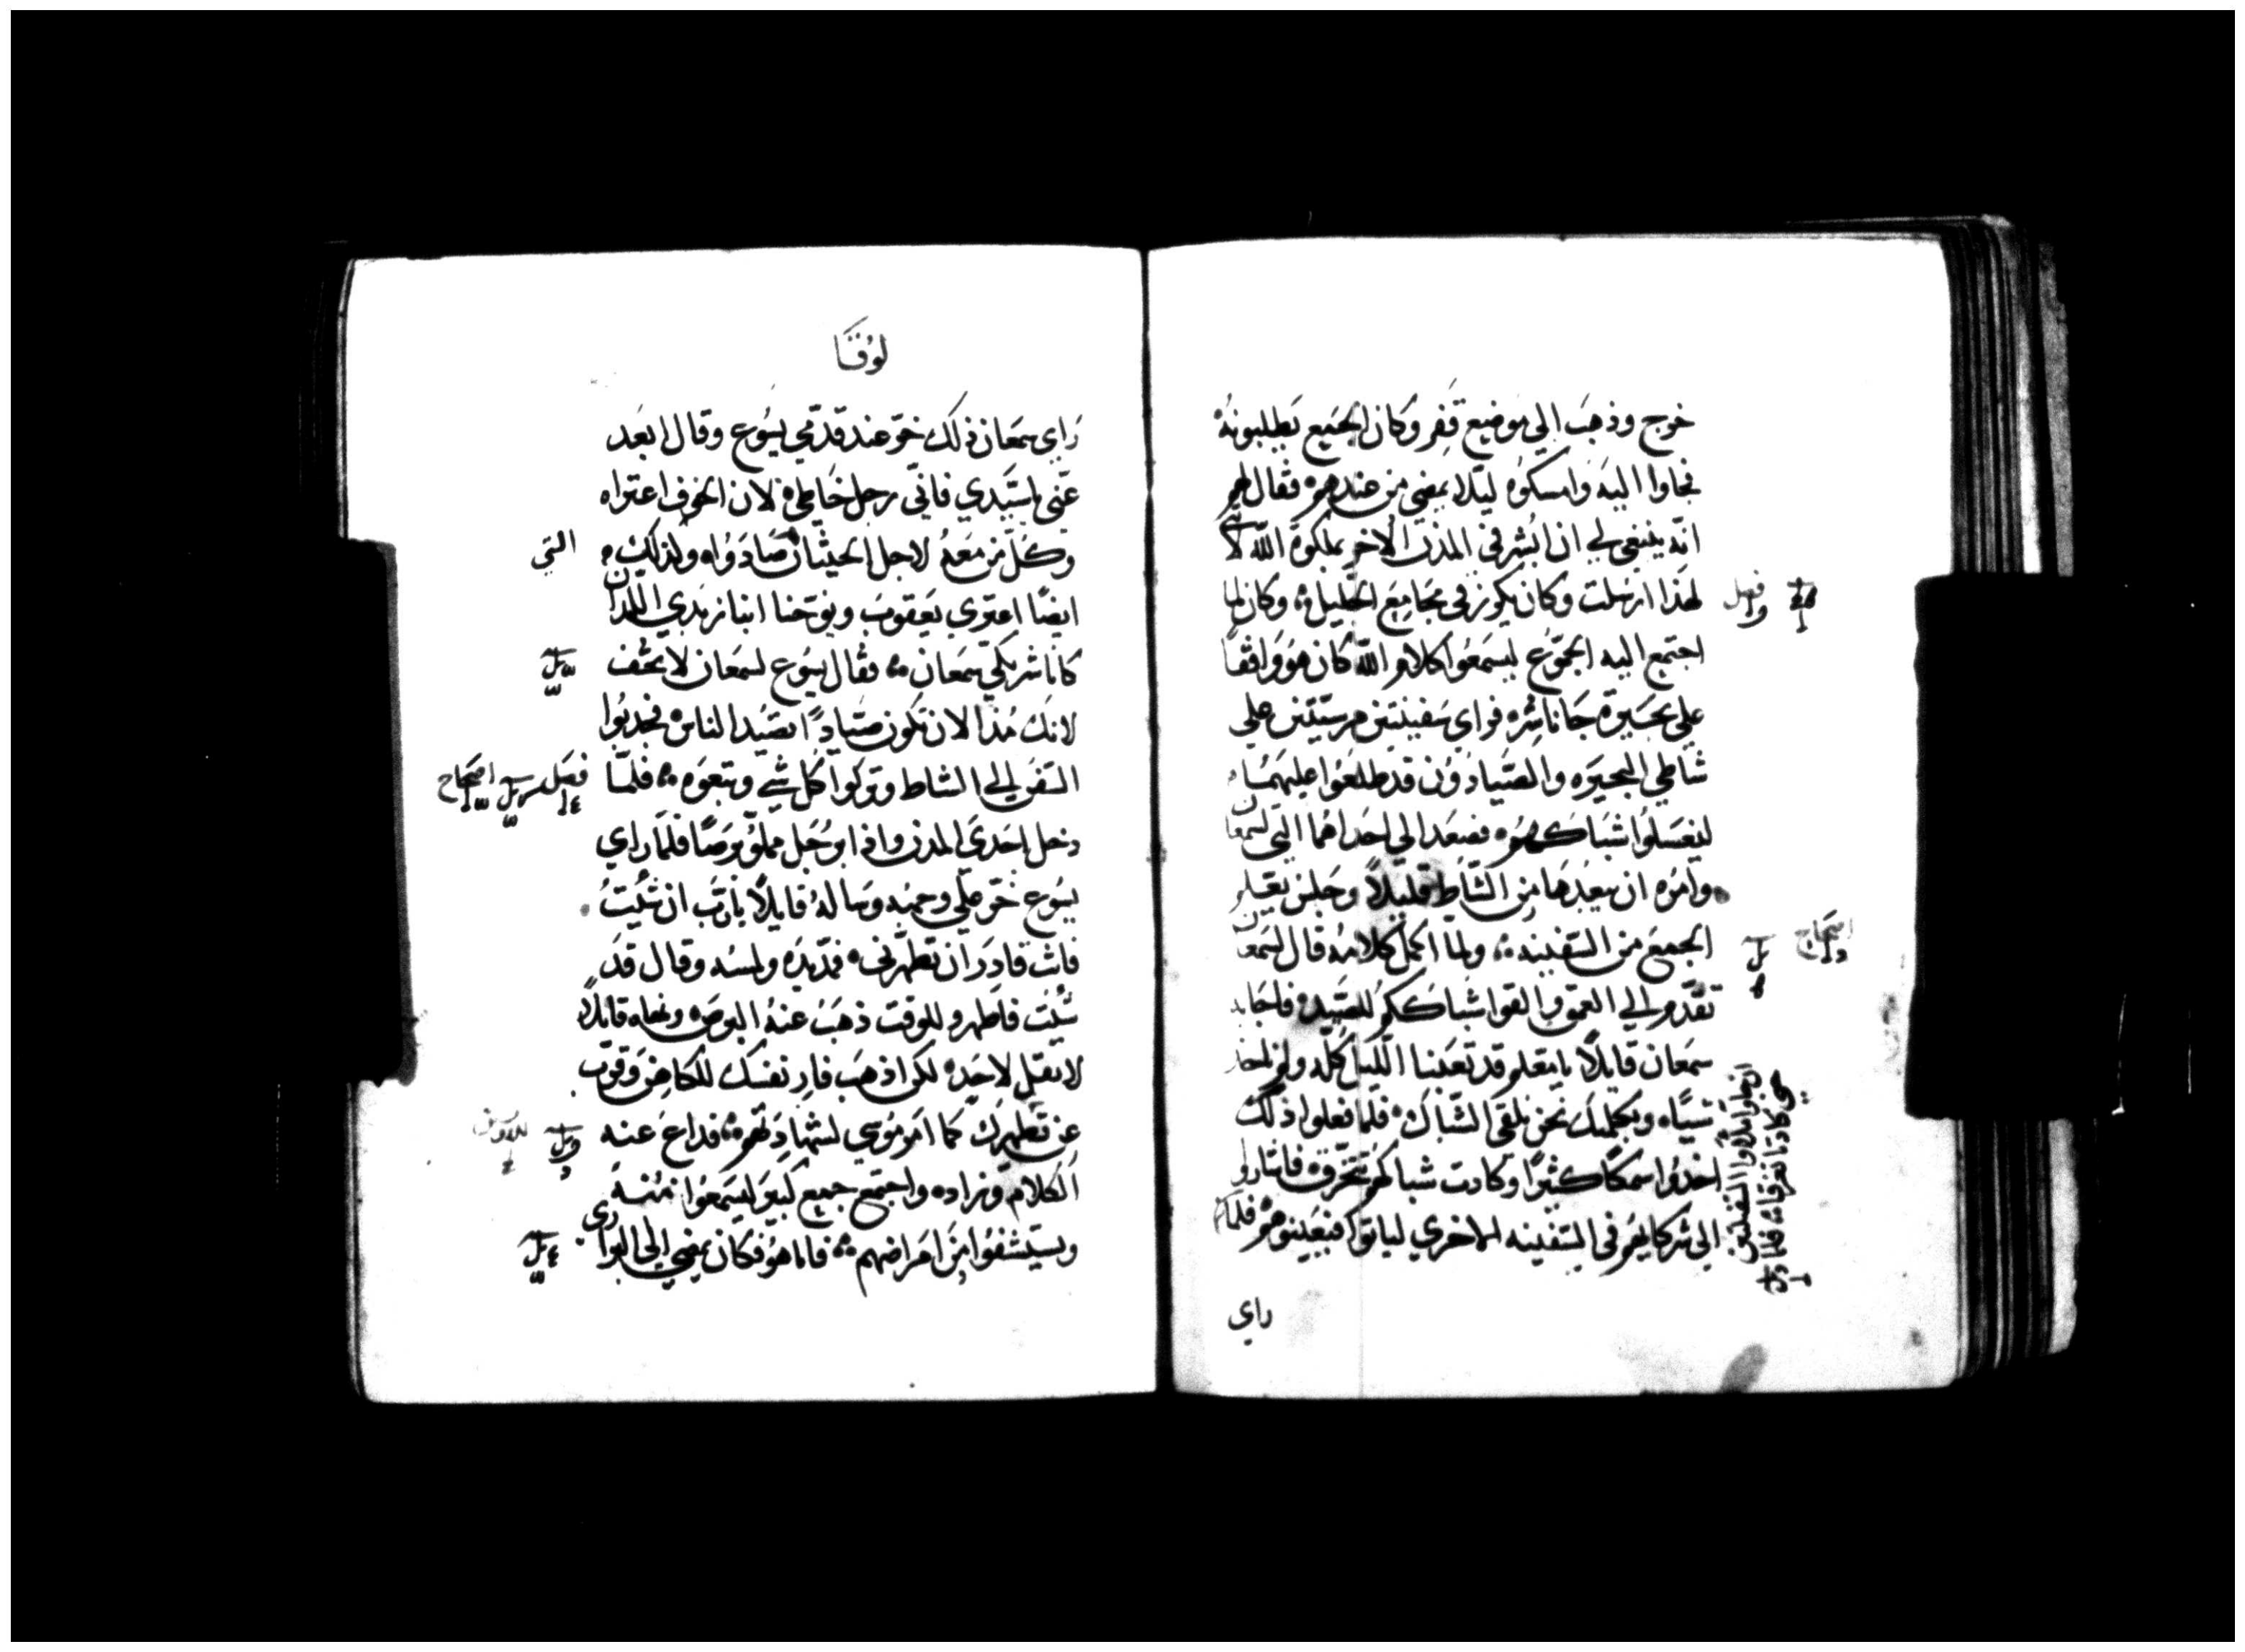 خرج وذهب الي موضع قفر وكان الجميع يطلبونه
فجاوا اليه وامسكوه ليلا يمضي من عندهم فقال لهم
انه ينبغي لي ان ابشر في المدن الاخر بملكوة الله لاني
لهذا ارسلت وكان يكرز في مجامع الجليل وكان لما
فصل
اجتمع اليه الجموع ليسمعوا كلام الله كان هو واقفا
علي بحيرة جاناشره فراي سفينتين مرسيتين علي
شاطي البحيره والصيادون قد طلعوا عليهما
ليغسلوا شباكهم فصعد الي احداهما التي لسمعان
وامره ان يبعدها من الشاط قليلا وجلس يعلم
الجميع من السفينه ولما اكمل كلامه قال لسمعان
اصحاح
تقدم الي العمق والقوا شباككم للصيد فاجابه
سمعان قايلا يا معلم قد تعبنا الليل كله ولم ناخذ
شيا وبكلمتك نحن نلقي الشباك فلما فعلوا ذلك
اخذوا سمكا كثيرا وكادت شباكهم تتخرق فاشاروا
الي شركايهم في السفينه الاخري لياتوا فيعينوهم فلما
اتوا املاوا السفينتين
حتي كادتا تغرقان فلما
راي
لوقا
راي سمعان ذلك خر عند قدمي يسوع وقال ابعد
عني يا سيدي فاني رجل خاطي لان الخوف اعتراه
وكل من معه لاجل الحيتان صادواه ولذلك
التي
ايضا اعتري يعقوب ويوحنا ابنا زبدي اللذان
كانا شريكي سمعان فقال يسوع لسمعان لا تخف
لانك مذ الان تكون صيادا تصيد الناس فجذبوا
السفن الي الشاط وتركوا كل شي وتبعوه فلما
فصل اصحاح
دخل احدي المدن واذا برجل مملو برصا فلما راي
يسوع خر علي وجهه وساله قايلا يا رب ان شيت
فانت قادر ان تطهرني فمد يده ولمسه وقال قد
شيت فاطهر وللوقت ذهب عنه البرص ونهاه قايلا
لا تقل لاحد لكن اذهب فار نفسك للكاهن وقرب
عن تطهيرك كما امر موسي لشهادتهم فذاع عنه
الكلام وزاده واجتمع جميع كبير ليسمعوا منه
ويستشفوا من امراضهم فاما هو فكان يمضي الي البراري